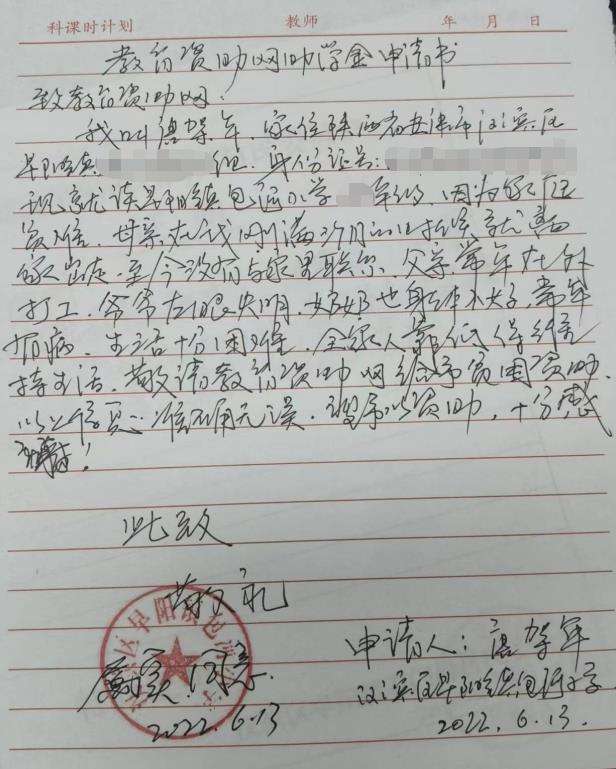 科课时计划 教师 年 月 日
教育资助网助学金申请书
致教育资助网:
我叫唐贺年,家住陕西省安康市汉滨区
早阳镇 组,身份证号:
现就读早阳镇包河小学 年级,因为家庭
贫难,母亲在我刚满 个月的时候就离
家出走,至今没有与家里联系,父亲常年在外
打工,爷爷左眼失明,奶奶也身体不好,常年
抱病,生活十分困难,全家人靠低保维
持生活,敬请教育资助网给予贫困资助,
以上信息准确无误,望予以资助,十分感
谢!
此致
敬礼
区早阳 包河小学
属实 同意.
2022.6.13
申请人:唐贺年
汉滨区早阳镇包河小学
2022.6.13.